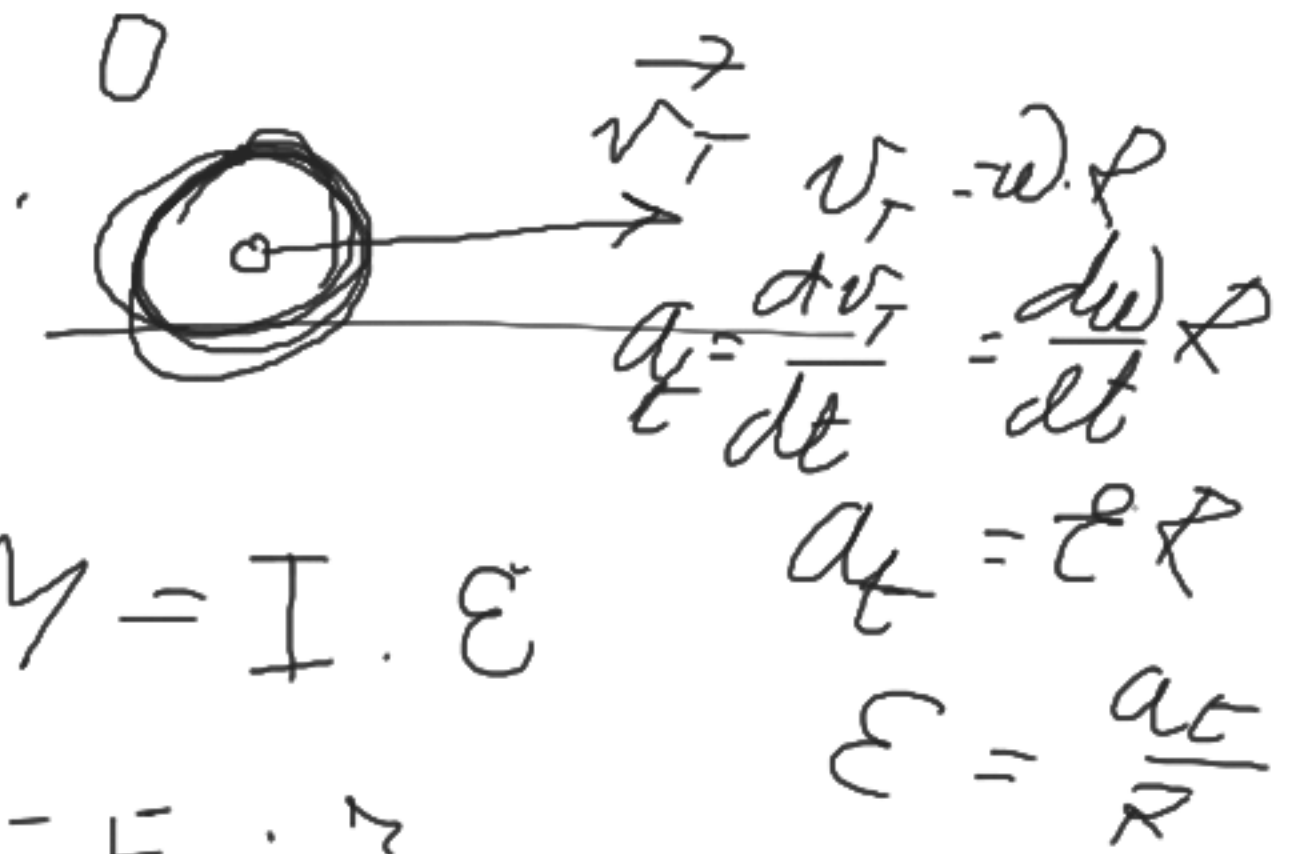 v⃗_T
v_T = ω · R
a_t = dv_T/dt = dω/dt R
a_t = ε R
M = I · ε
ε = a_t/R